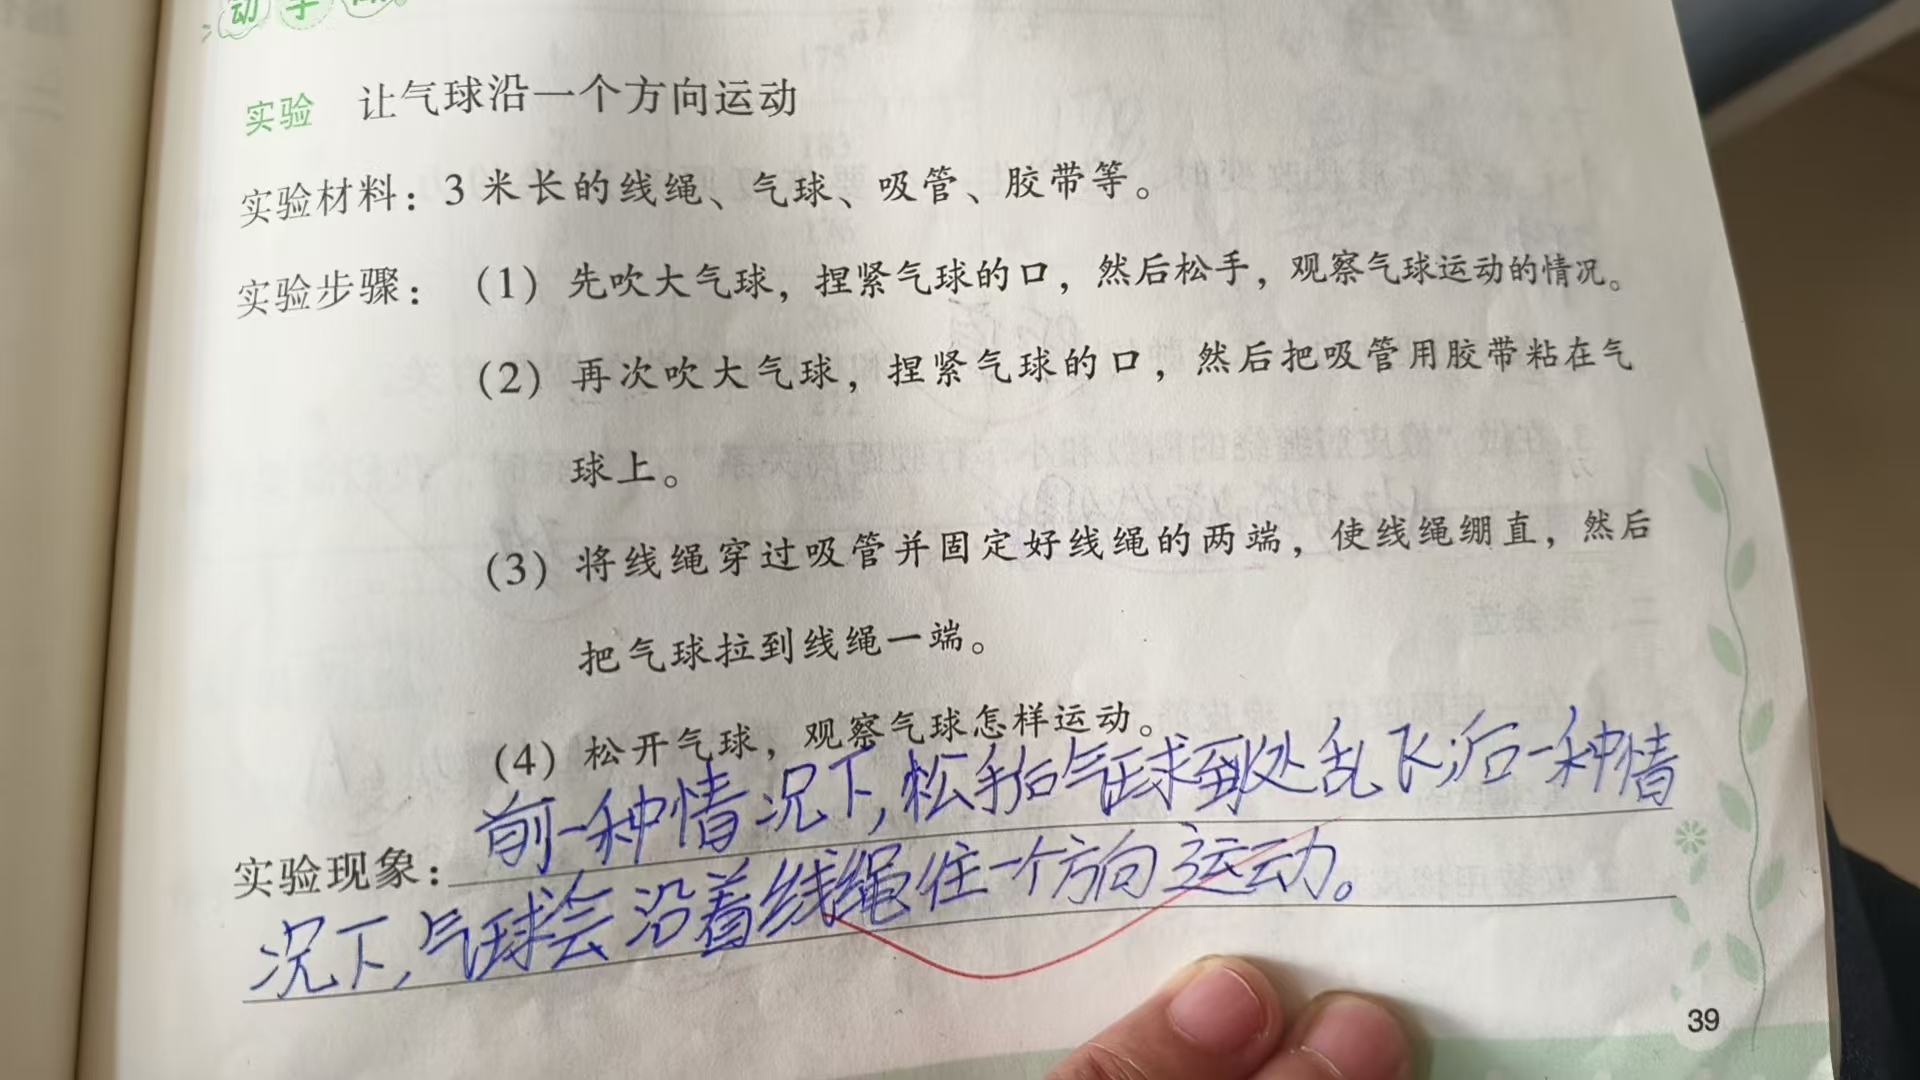 动手
实验 让气球沿一个方向运动
实验材料：3米长的线绳、气球、吸管、胶带等。
实验步骤：（1）先吹大气球，捏紧气球的口，然后松手，观察气球运动的情况。
（2）再次吹大气球，捏紧气球的口，然后把吸管用胶带粘在气
球上。
（3）将线绳穿过吸管并固定好线绳的两端，使线绳绷直，然后
把气球拉到线绳一端。
（4）松开气球，观察气球怎样运动。
实验现象：前一种情况下，松手后气球到处乱飞；后一种情
况下，气球会沿着线绳住一个方向运动。
39